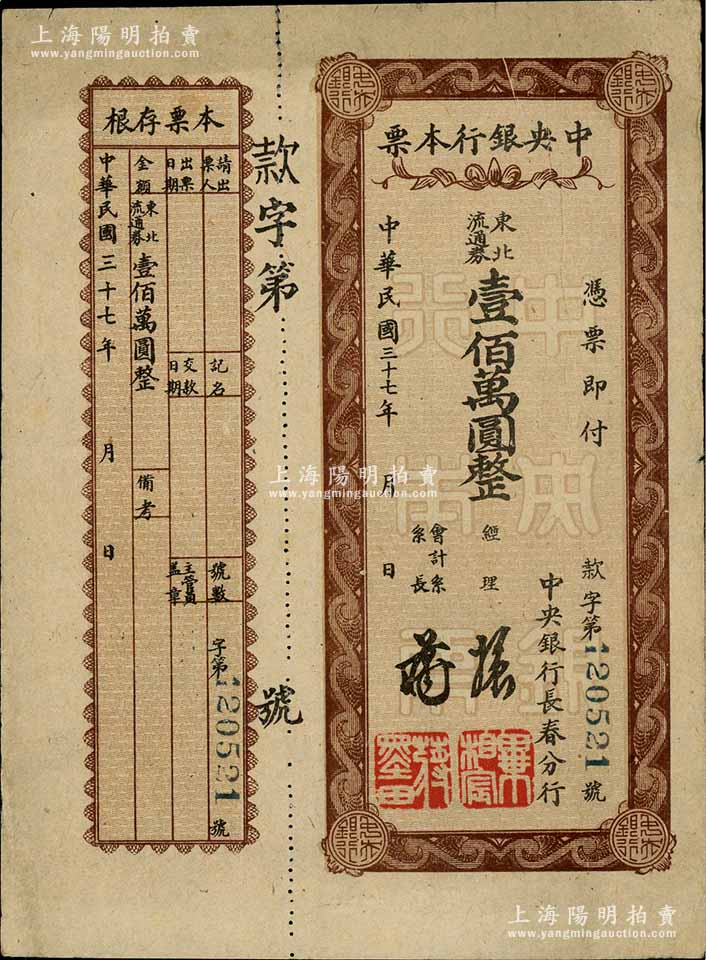 上海陽明拍賣
www.yangmingauction.com
上海陽明拍賣
www.yangmingauction.com
票本行銀央中
憑票即付
東北
流通券
壹佰萬圓整
中華民國三十七年 月 日
款字第120521號
中央銀行長春分行
經理
會計系
系長
款字第 號
根存票本
請出
票人
出票
日期
金額
東北
流通券
壹佰萬圓整
中華民國三十七年 月 日
記名
交款
日期
備考
號數
主管員
蓋章
字第120521號
上海陽明拍賣
www.yangmingauction.com
上海陽明拍賣
www.yangmingauction.com